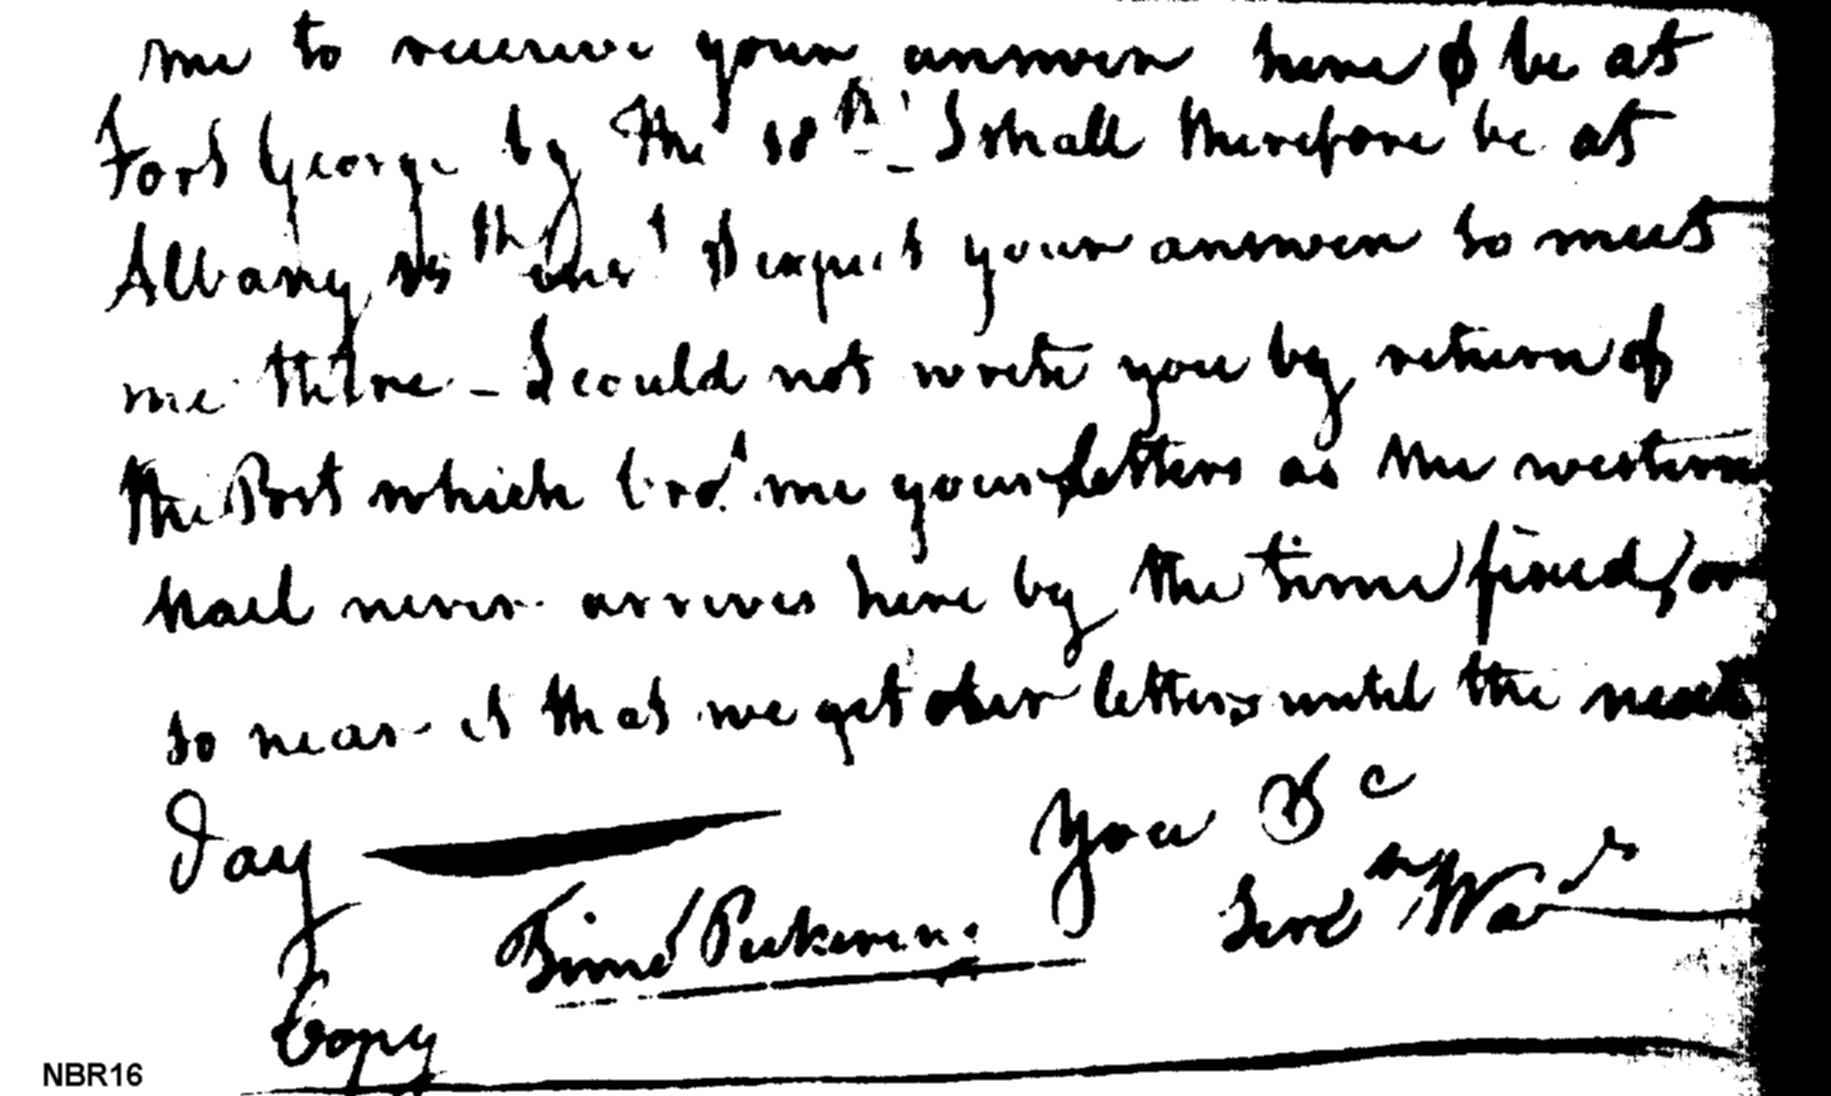 me to receive your answer here & be at
Fort George by the 18th. I shall therefore be at
Albany 15th inst & expect your answer to meet
me there - I could not write you by return of
the Post which brot me your letters as the western
Mail never arrives here by the time fixed, or
so near it that we get our letters until the next
Day You &c
Timo Pickering
Copy
NBR16